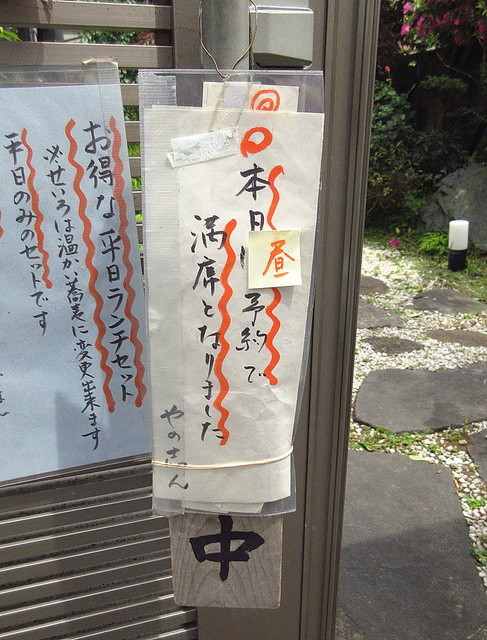 本日昼予約で
満席となりました
やのさん
中
お得な平日ランチセット
※せいろは温かい蕎麦に変更出来ます
平日のみのセットです